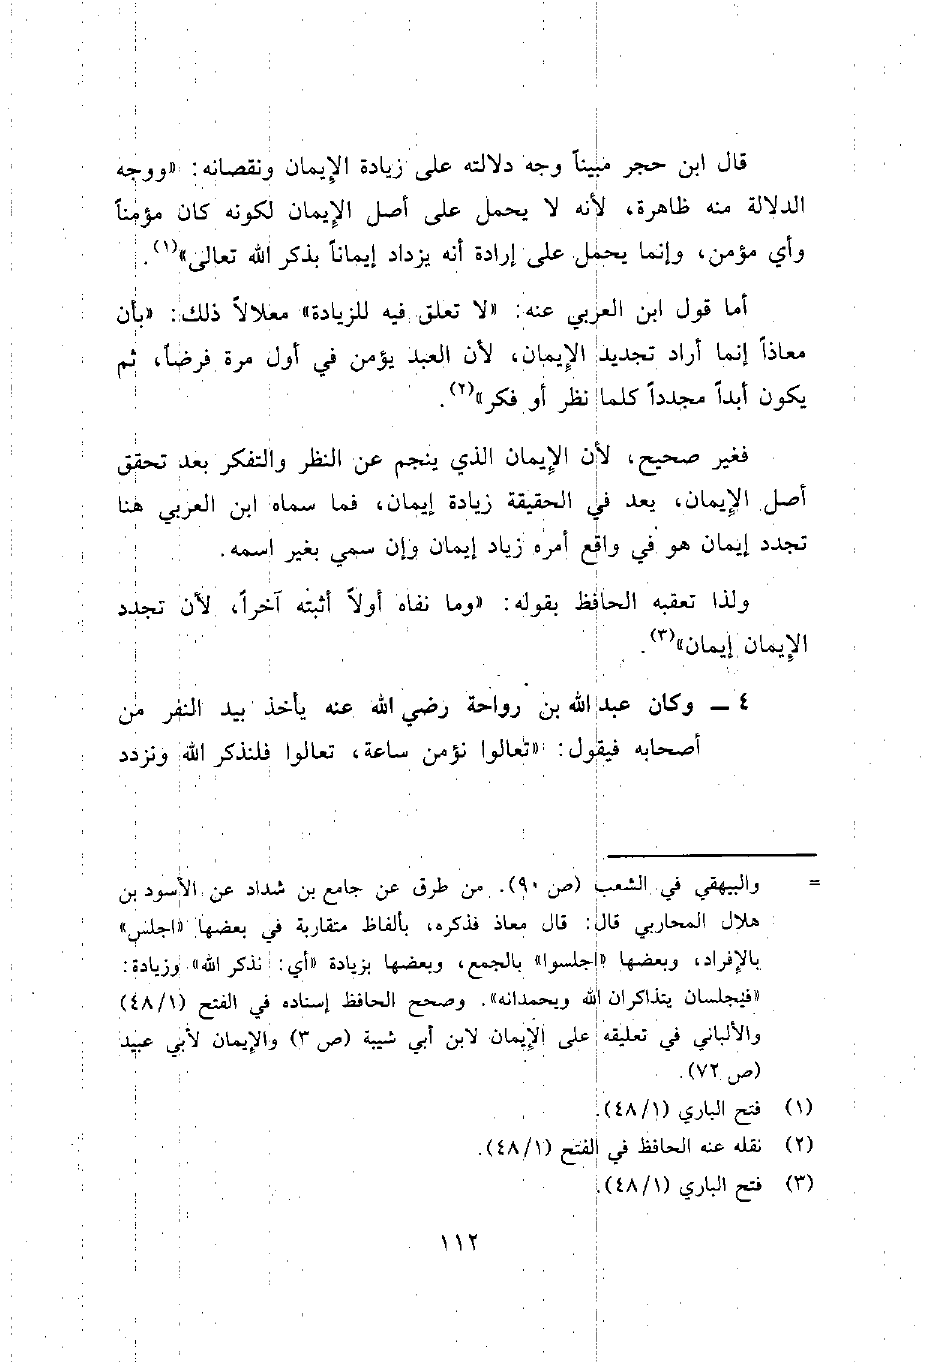 قال ابن حجر مبيناً وجه دلالته على زيادة الإيمان ونقصانه: «ووجه
الدلالة منه ظاهرة، لأنه لا يحمل على أصل الإيمان لكونه كان مؤمناً
وأي مؤمن، وإنما يحمل على إرادة أنه يزداد إيماناً بذكر الله تعالى»(١).
أما قول ابن العربي عنه: «لا تعلق فيه للزيادة» معلالاً ذلك: «بأن
معاذاً إنما أراد تجديد الإيمان، لأن العبد يؤمن في أول مرة فرضاً، ثم
يكون أبداً مجدداً كلما نظر أو فكر»(٢).
فغير صحيح، لأن الإيمان الذي ينجم عن النظر والتفكر بعد تحقق
أصل الإيمان، يعد في الحقيقة زيادة إيمان، فما سماه ابن العربي هنا
تجدد إيمان هو في واقع أمره زياد إيمان وإن سمي بغير اسمه.
ولذا تعقبه الحافظ بقوله: «وما نفاه أولاً أثبته آخراً، لأن تجدد
الإيمان إيمان»(٣).
٤ ــ وكان عبد الله بن رواحة رضي الله عنه يأخذ بيد النفر من
أصحابه فيقول: «تعالوا نؤمن ساعة، تعالوا فلنذكر الله ونزدد
= والبيهقي في الشعب (ص ٩٠). من طرق عن جامع بن شداد عن الأسود بن
هلال المحاربي قال: قال معاذ فذكره، بألفاظ متقاربة في بعضها «اجلس»
بالإفراد، وبعضها «اجلسوا» بالجمع، وبعضها بزيادة «أي: نذكر الله» وزيادة:
«فيجلسان يتذاكران الله ويحمدانه». وصحح الحافظ إسناده في الفتح (٤٨/١)
والألباني في تعليقه على الإيمان لابن أبي شيبة (ص ٣) والإيمان لأبي عبيد
(ص ٧٢).
(١) فتح الباري (٤٨/١).
(٢) نقله عنه الحافظ في الفتح (٤٨/١).
(٣) فتح الباري (٤٨/١).
١١٢